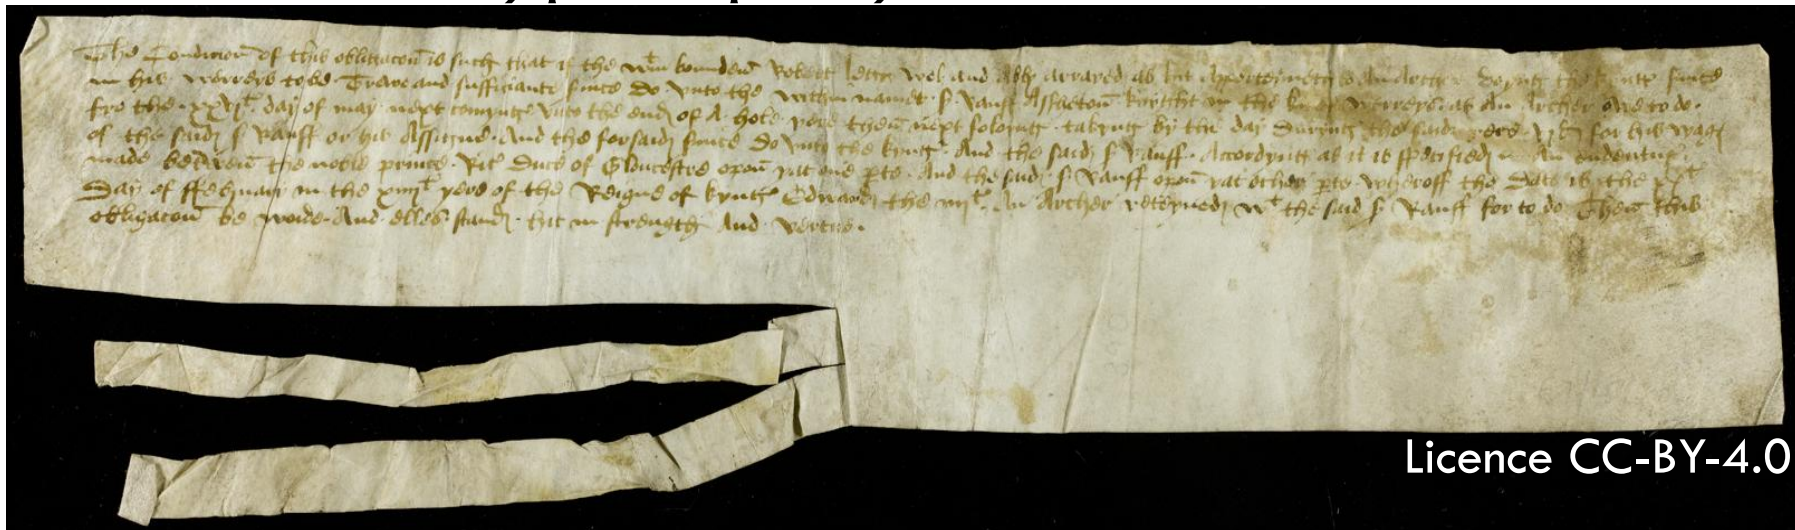 The Condicion of this obligacion is such that if the wtin bounden Robert wel and ably arrayed as hit Apperteineth to An Archer doyng the kyng suice
in his werrers to be Treue and sufficiante suice do vnto the within namet S Rauff Assheton knyght in the kings werrers as An Archer owe to do
fro the xxvjti day of may next comyng vnto the end of A hole yere then next foloyng takyng by the day during the said yere vjd for his wages
of the said S Rauff or his Assigne And the forsaid suice do vnto the kyng And the said S Rauff Accordyng as it is specified in An endenture
made betwen the noble prince Ric Duce of Gloucestre opon yat one pte And the said S Rauff opon yat other pte wheroff the date is the xxti
Day of ffebruary in the xiiijti yere of the Reigne of kyng Edward the iiijt An Archer reteyned wt the said S Rauff for to do Then this
obligacion be woide And elles stand hit in strength And vertue
Licence CC-BY-4.0